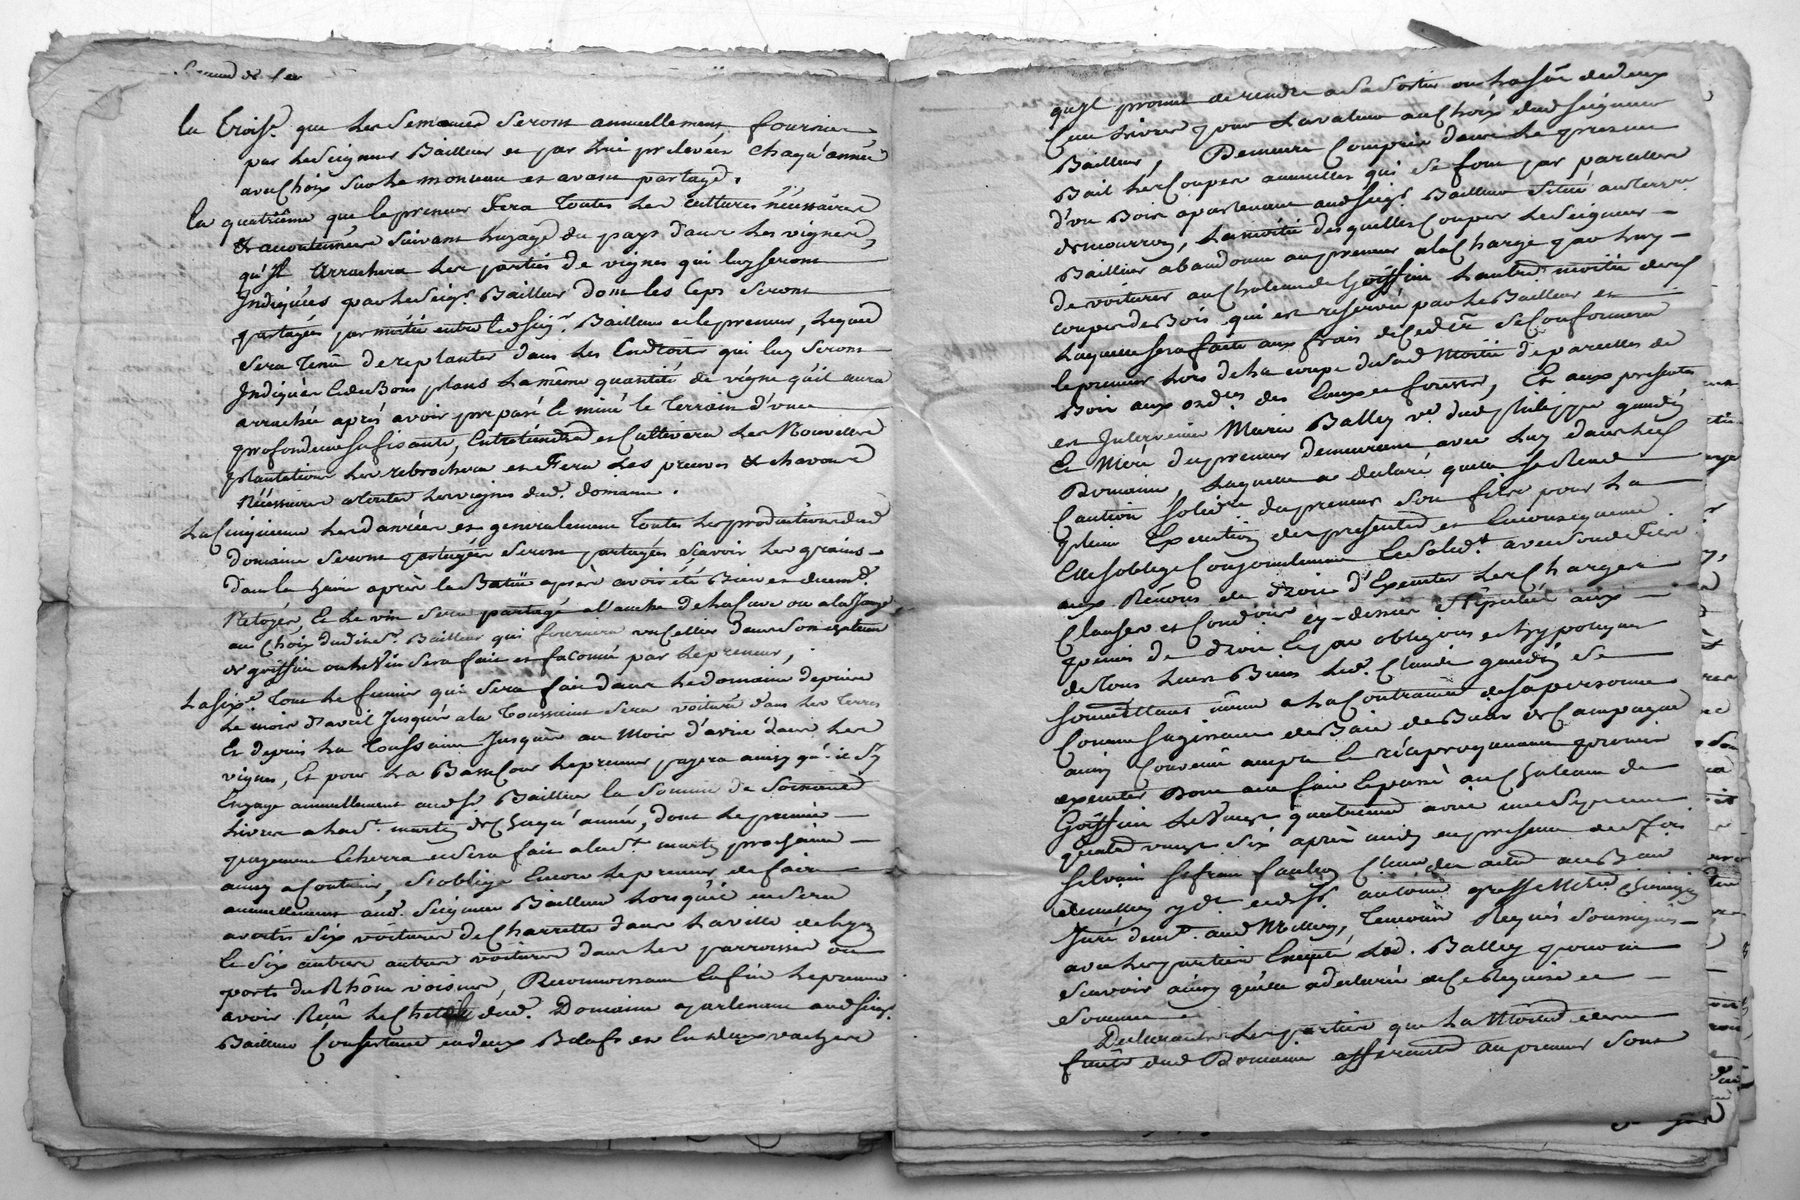 la Troise. que les Semences Seront annuellement fournies
par le Seigneur Bailleur et par luy prelevées chaqu'année
au Choix Sur le monceau et avant partage.
la quatrième que le preneur fera Toutes les cultures nécessaires
& accoutumées Suivant l'uzage du pays dans les vignes,
qu'Il Arrachera les parties de vignes qui luy seront
Indiquées par le Seigr. Bailleur dont les Ceps Seront
partagés par moitié entre led. Seigr. Bailleur et le preneur, lequel
Sera Tenû de replanter dans les Endroits qui luy Seront
Indiqués Et de Bons plans la même quantité de vigne qu'il aura
arraché aprés avoir preparé & miné le Terrain d'une
profondeur Sufisante, Entretiendra et Cultivera les Nouvelles
plantations les rebrochera et Fera les preuves &
Nécessaires a toutes les vignes dud. domaine.
La Cinquieme les danrées et generalement Toutes les productions dud.
domaine Seront partagées Seront partagées, Scavoir les grains
dans la après la Batüe après avoir été Bien et duemt.
Netoyés, Et le vin Sera partagé a l'anche de la Cuve ou a la Jauge
au Choix dudit Sr. Bailleur qui fournira un Cellier dans Son chateau
de goiffieu ou le Vin Sera fait et faconné par le preneur,
La Sixe. Tout le fumier qui Sera fait dans le domaine depuis
le mois d'avril Jusqu'es a la Toussaint Sera voituré dans les Terres
Et depuis la Toussaint Jusqu'es au Mois d'avril dans les
vignes, Et pour la Basse Cour le preneur payera ainsy qu'il S'y
Engage annuellement aud. Sr. Bailleur la Somme de
livres a la St. martin de Chaqu'année, dont le premier
payement Echerra et Sera fait a la St. martin prochaine
ainsy a Continuer, S'oblige Encore le preneur de faire
annuellement aud. Seigneur Bailleur lorsqu'il en Sera
avertis Six voitures de Charrette dans la ville de Lyon
& Six autres autres voitures dans les parroisses ou
ports du Rhône voisins, Reconnoissant Enfin le preneur
avoir Reçû le Cheteil dud. Domaine apartenant aud. Seigr.
Bailleur Consistant en deux Bœufs et En deux vaches
qu'Il promet de rendre a Sa Sortie ou la Sôe de deux
Cent livres pour la valeur au Choix dud. Seigneur
Bailleur, Demeurent Compris dans le present
Bail les Coupes annuelles qui Se font par parcelles
d'un Bois apartenant aud. Seigr. Bailleur Situé au Terroir
de mourron, la moitié desquelles Coupes le Seigneur
Bailleur abandonne au preneur a la Charge par luy
de voiturer au Château de Goiffieu l'autre moitié des
coupes de Bois qui est reservée par le Bailleur et
laquelle Sera faite aux frais Se Conformera
le preneur lors de la coupe dusd. Moitié de parcelles de
Bois aux ordces. des Eaux et forests, Et aux presentes
est Intervenue Marie Balley ve. dud. philippe gaudin
Et Mère du preneur demeurant avec luy dans led.
Domaine, laquelle a declaré qu'elle Se Rend
Caution Solidre du preneur Son fils pour la
pleine Execution des presentes et En consequence
Elle S'oblige Conjointement Et Solidt. avec Sond. Fils
aux Renons de droit d'Executer les Charges
Clauses et Condions cy-dessus Stipulées aux
peines de droit Et par obligaõns et hypotque
de Tous leurs Biens led. Claude gaudin Se
Soumettant même a la Contrainte de Sa personne
Comme S'agissant de Bail de Baux de Campagne
ainsy Convenû accepté & réciproquement promis
executer Dont acte fait & passé au Château de
Goiffieu le vingt quatrieme avril mil Sept cent
quatre vingt Six après midy en presence de Sr. Jois.
Silvain
 Antoine Chirurgien
Juré demt. aud. Millery, Temoins Requis Soussignés
avec les parties Excepté lad. Balley pour ne
Scavoir ainsy qu'elle a declaré de Ce Requise et
Sommée
Declarants les parties que la Moitié des
fruits dud. Domaine afferents au preneur Sont